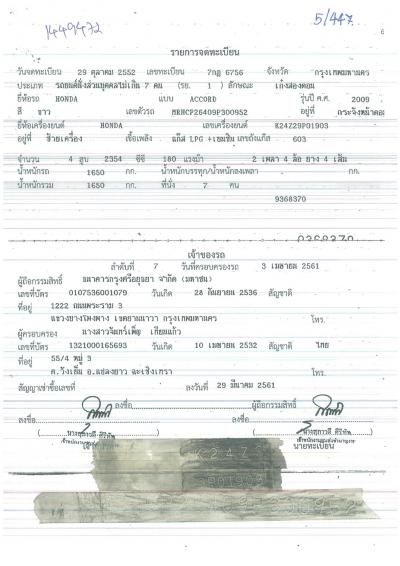 1449472
5/447
รายการจดทะเบียน
วันจดทะเบียน 29 ตุลาคม 2552 เลขทะเบียน 7กฎ 6756 จังหวัด กรุงเทพมหานคร
ประเภท รถยนต์นั่งส่วนบุคคลไม่เกิน 7 คน (รย. 1 ) ลักษณะ เก๋งสองตอน
ยี่ห้อรถ HONDA แบบ ACCORD รุ่นปี ค.ศ. 2009
สี ขาว เลขตัวรถ MRHCP26409P300952 อยู่ที่ กระจังหน้าตอน
ยี่ห้อเครื่องยนต์ HONDA เลขเครื่องยนต์ K24Z29P01903
อยู่ที่ ข้างเครื่อง เชื้อเพลิง แก๊ส LPG +เบนซิน เลขถังแก๊ส 603
จำนวน 4 สูบ 2354 ซีซี 180 แรงม้า 2 เพลา 4 ล้อ ยาง 4 เส้น
น้ำหนักรถ 1650 กก. น้ำหนักบรรทุก/น้ำหนักลงเพลา กก.
น้ำหนักรวม 1650 กก. ที่นั่ง 7 คน
9368370
9368370
เจ้าของรถ
ลำดับที่ 7 วันที่ครอบครองรถ 3 เมษายน 2561
ผู้ถือกรรมสิทธิ์ ธนาคารกรุงศรีอยุธยา จำกัด (มหาชน)
เลขที่บัตร 0107536001079 วันเกิด 28 กันยายน 2536 สัญชาติ
ที่อยู่ 1222 ถนนพระราม 3
แขวงบางโพงพาง เขตยานนาวา กรุงเทพมหานคร โทร.
ผู้ครอบครอง นางสาวจันทร์เพ็ญ เทียมแก้ว
เลขที่บัตร 1321000165693 วันเกิด 10 เมษายน 2532 สัญชาติ ไทย
ที่อยู่ 55/4 หมู่ 3
ต.วังเย็น อ.แปลงยาว ฉะเชิงเทรา โทร.
สัญญาเช่าซื้อเลขที่ ลงวันที่ 29 มีนาคม 2561
ลงชื่อ ผู้ถือกรรมสิทธิ์
ลงชื่อ ลงชื่อ
นายทะเบียน